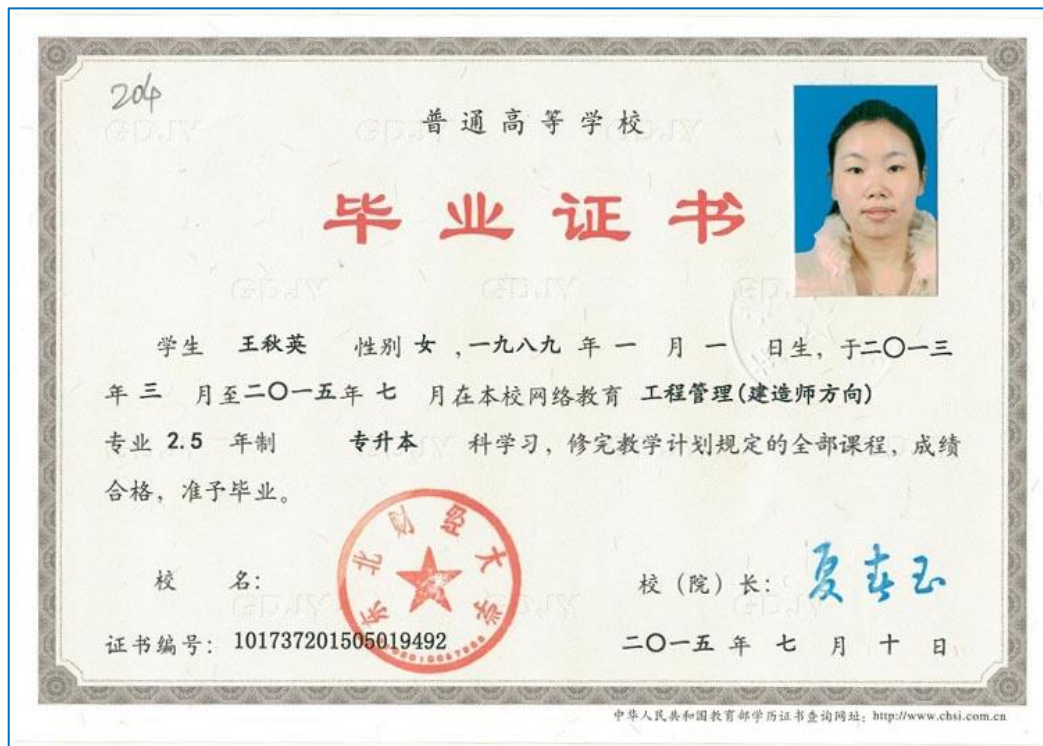 204
普通高等学校
毕业证书
学生 王秋英 性别 女 ,一九八九 年 一 月 一 日生，于二〇一三
年 三 月至二〇一五年 七 月在本校网络教育 工程管理(建造师方向)
专业 2.5 年制 专升本 科学习，修完教学计划规定的全部课程，成绩
合格，准予毕业。
东北财经大学
校 名：
校（院）长： 夏春玉
证书编号： 101737201505019492
二〇一五 年 七 月 十 日
中华人民共和国教育部学历证书查询网址：http://www.chsi.com.cn